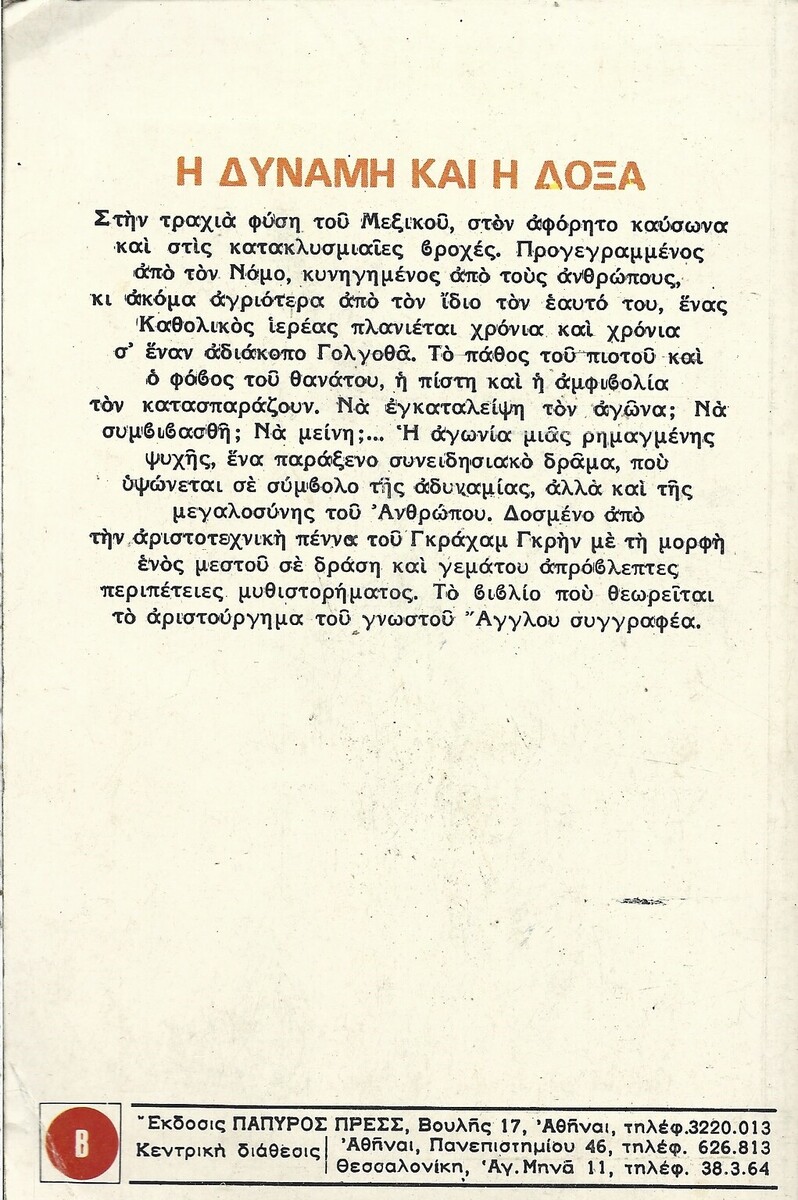 Η ΔΥΝΑΜΗ ΚΑΙ Η ΔΟΞΑ
Στὴν τραχιὰ φύση τοῦ Μεξικοῦ, στὸν ἀφόρητο καύσωνα
καὶ στὶς κατακλυσμιαῖες βροχές. Προγεγραμμένος
ἀπὸ τὸν Νόμο, κυνηγημένος ἀπὸ τοὺς ἀνθρώπους,
κι ἀκόμα ἀγριότερα ἀπὸ τὸν ἴδιο τὸν ἑαυτό του, ἕνας
Καθολικὸς ἱερέας πλανιέται χρόνια καὶ χρόνια
σ' ἕναν ἀδιάκοπο Γολγοθᾶ. Τὸ πάθος τοῦ πιστοῦ καὶ
ὁ φόβος τοῦ θανάτου, ἡ πίστη καὶ ἡ ἀμφιβολία
τὸν κατασπαράζουν. Νὰ ἐγκαταλείψη τὸν ἀγῶνα; Νὰ
συμβιβασθῆ; Νὰ μείνη;... Ἡ ἀγωνία μιᾶς ρημαγμένης
ψυχῆς, ἕνα παράξενο συνειδησιακὸ δρᾶμα, ποὺ
ὑψώνεται σὲ σύμβολο τῆς ἀδυναμίας, ἀλλὰ καὶ τῆς
μεγαλοσύνης τοῦ Ἀνθρώπου. Δοσμένο ἀπὸ
τὴν ἀριστοτεχνικὴ πέννα τοῦ Γκράχαμ Γκρὴν μὲ τὴ μορφὴ
ἑνὸς μεστοῦ σὲ δράση καὶ γεμάτου ἀπρόβλεπτες
περιπέτειες μυθιστορήματος. Τὸ βιβλίο ποὺ θεωρεῖται
τὸ ἀριστούργημα τοῦ γνωστοῦ Ἄγγλου συγγραφέα.
Β
Ἔκδοσις ΠΑΠΥΡΟΣ ΠΡΕΣΣ, Βουλῆς 17, Ἀθῆναι, τηλέφ.3220.013
Κεντρικὴ διάθεσις
Ἀθῆναι, Πανεπιστημίου 46, τηλέφ. 626.813
Θεσσαλονίκη, Ἁγ. Μηνᾶ 11, τηλέφ. 38.3.64